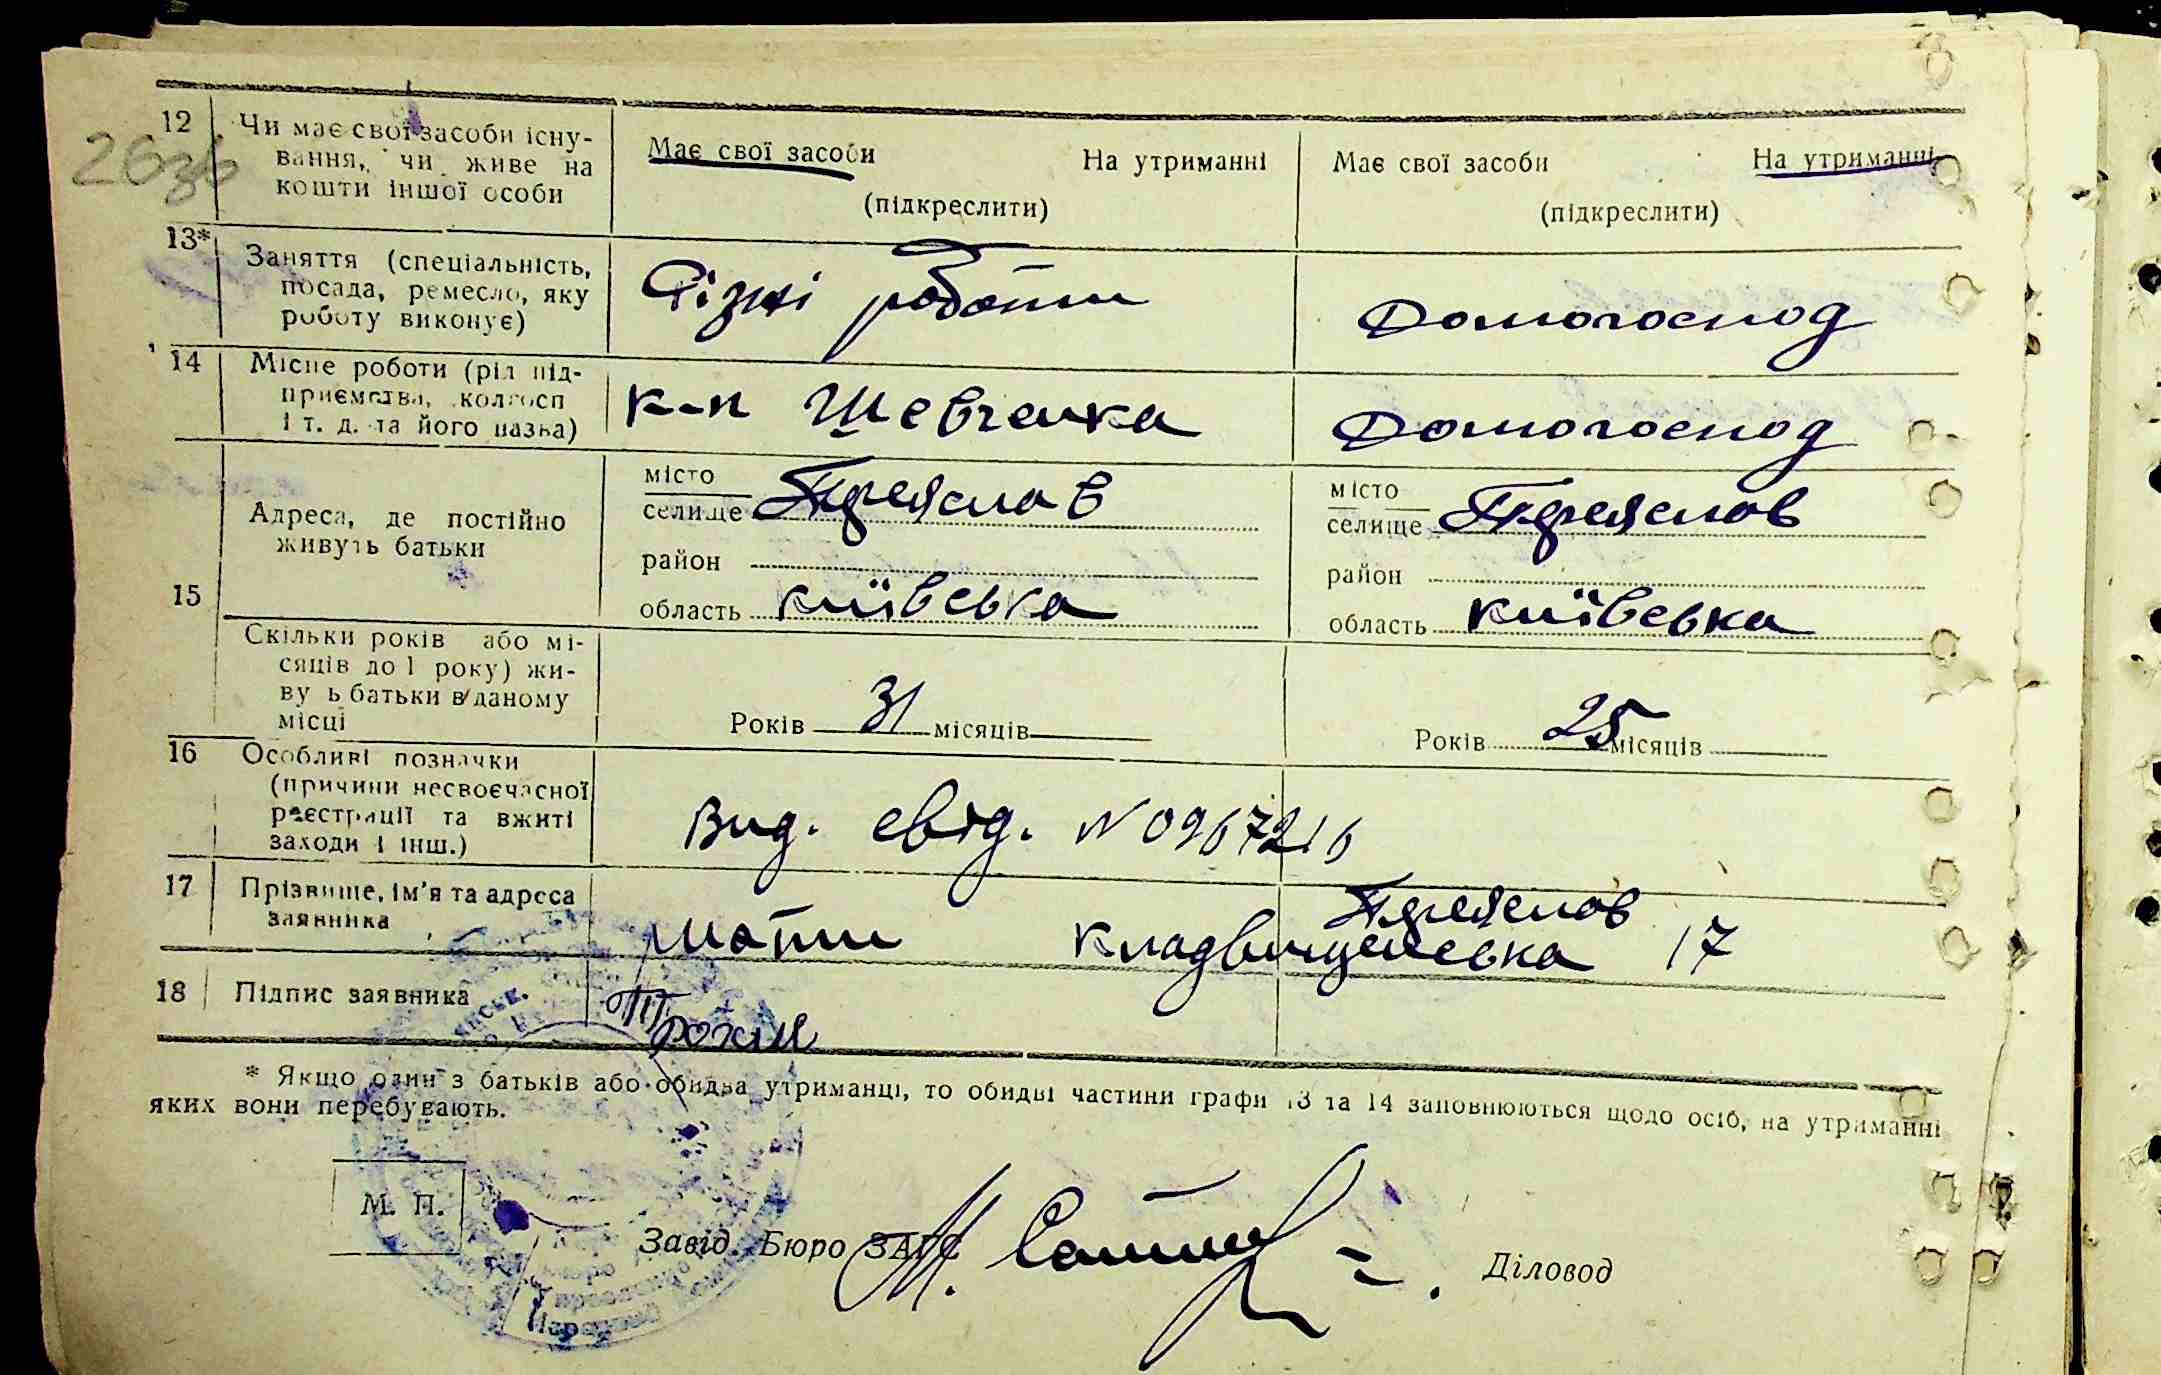 26зв
12 Чи має свої засоби існу-
вання, чи живе на
кошти іншої особи
Має свої засоби На утриманні
(підкреслити)
Має свої засоби На утриманні
(підкреслити)
13* Заняття (спеціальність,
посада, ремесло, яку
роботу виконує)
Різні роботи
Домогоспод
14 Місце роботи (рід під-
приємства, колгосп
і т. д. та його назва)
к-п Шевченка
Домогоспод
15 Адреса, де постійно
живуть батьки
місто
селище Переяслав
район
область київська
місто
селище Переяслов
район
область київська
Скільки років або мі-
сяців до 1 року) жи-
ву ь батьки в даному
місці
Років 31 місяців
Років 25 місяців
16 Особливі позначки
(причини несвоєчасної
реєстрації та вжиті
заходи і інш.)
Вид. свід. N 0967216
17 Прізвище, ім'я та адреса
заявника
Переяслов
мати кладвищенська 17
18 Підпис заявника
* Якщо один з батьків або обидва утриманці, то обидві частини графи 13 та 14 заповнюються щодо осіб, на утриманні
яких вони перебувають.
М. П.
Завід. Бюро ЗАГС
Діловод